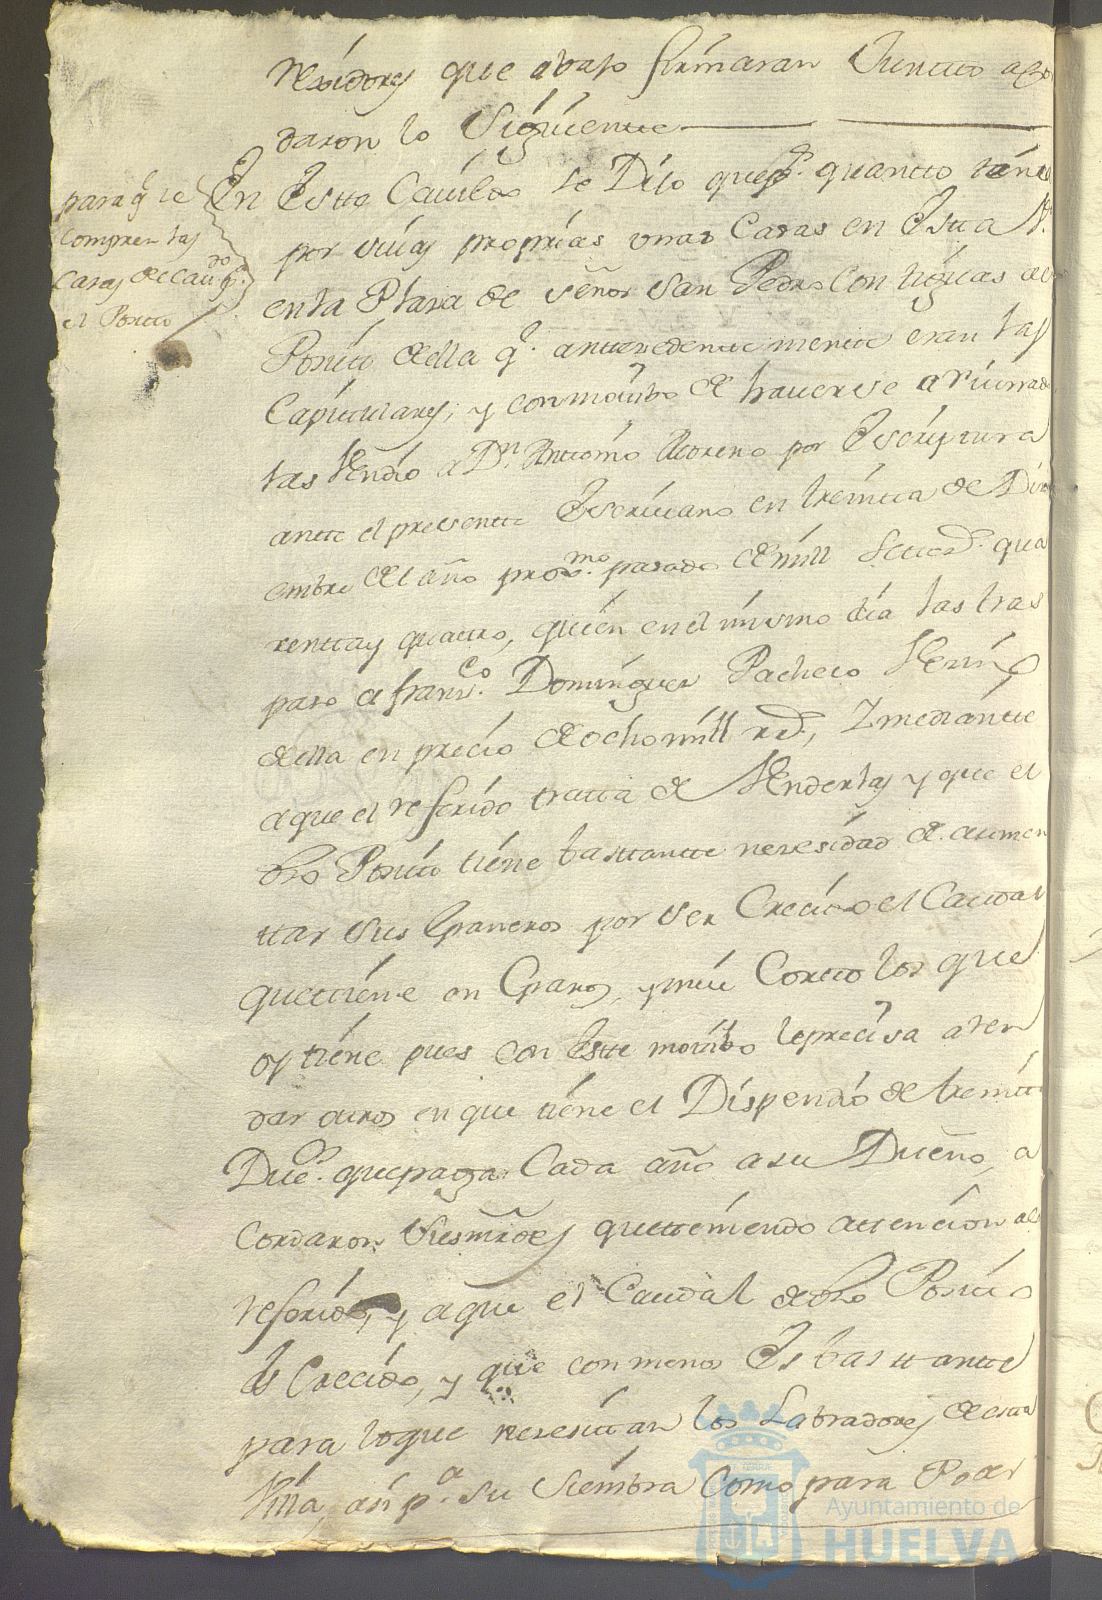 rexidores que abajo firmaran Juntto acor
daron lo Siguiente
para q.e se
compren las
Casas de Cavdo p.a
el Positto
En Estte Cavildo se Dijo que p.r quantto tenía
por suias proprias unas Casas en Esta V.a
en la Plaza de señor San Pedro Contiguas al
Positto della q.e antecedentemente eran las
Capitulares; y con motibo de haverse arruinado
las Vendio a D.n Anttonio Moreno por Escriptura
antte el presentte Escrivano en treintta de Dizi
embre del año prox.mo pasado de mill Settez.s qua
rentta y quattro, quien en el mismo dia las tras
paso a Fran.co Dominguez Pacheco Vezino
della en precio de ocho mill r.s, Y mediantte
a que el referido tratta de Venderlas y que el
dho Positto tiene basttantte nezesidad de aumen
ttar sus Graneros por ser Crecido el Caudal
que ttiene en Granos, y mui Cortto los que
oy tiene pues con Estte motibo le precisa arren
dar otros en que tiene el Dispendio de treintta
Duc.os que paga Cada año a su Dueño, a
cordaron Sus mrdes que tteniendo attencion a lo
referido, y a que el Caudal de dho Positto
Es Crecido, y que con menos Es basttantte
para lo que nezesittan los Labradores de esta
Villa, asi p.a su Siembra Como para Poar
Ayuntamiento de
HUELVA